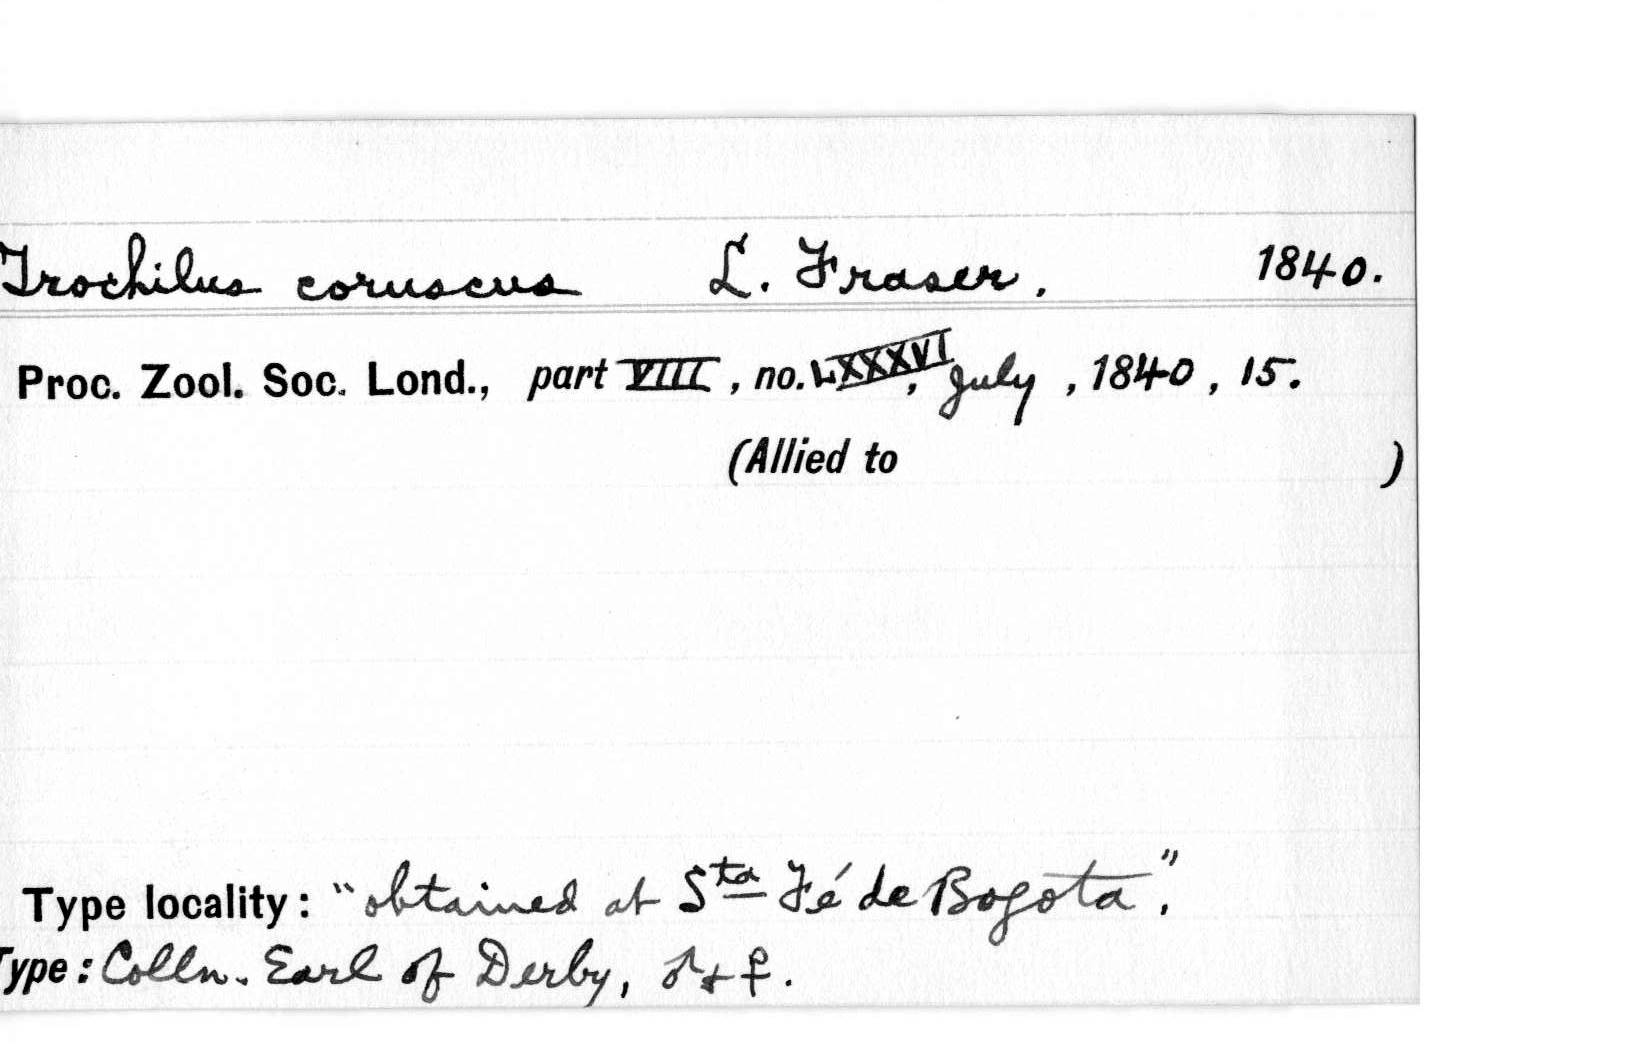 Trochilus coruscus L. Fraser. 1840.
Proc. Zool. Soc. Lond., part VIII, no. LXXXVI, July, 1840, 15.
(Allied to )
Type locality: "obtained at Sta Fé de Bogota".
Type: Colln. Earl of Derby, ♂ + ♀.